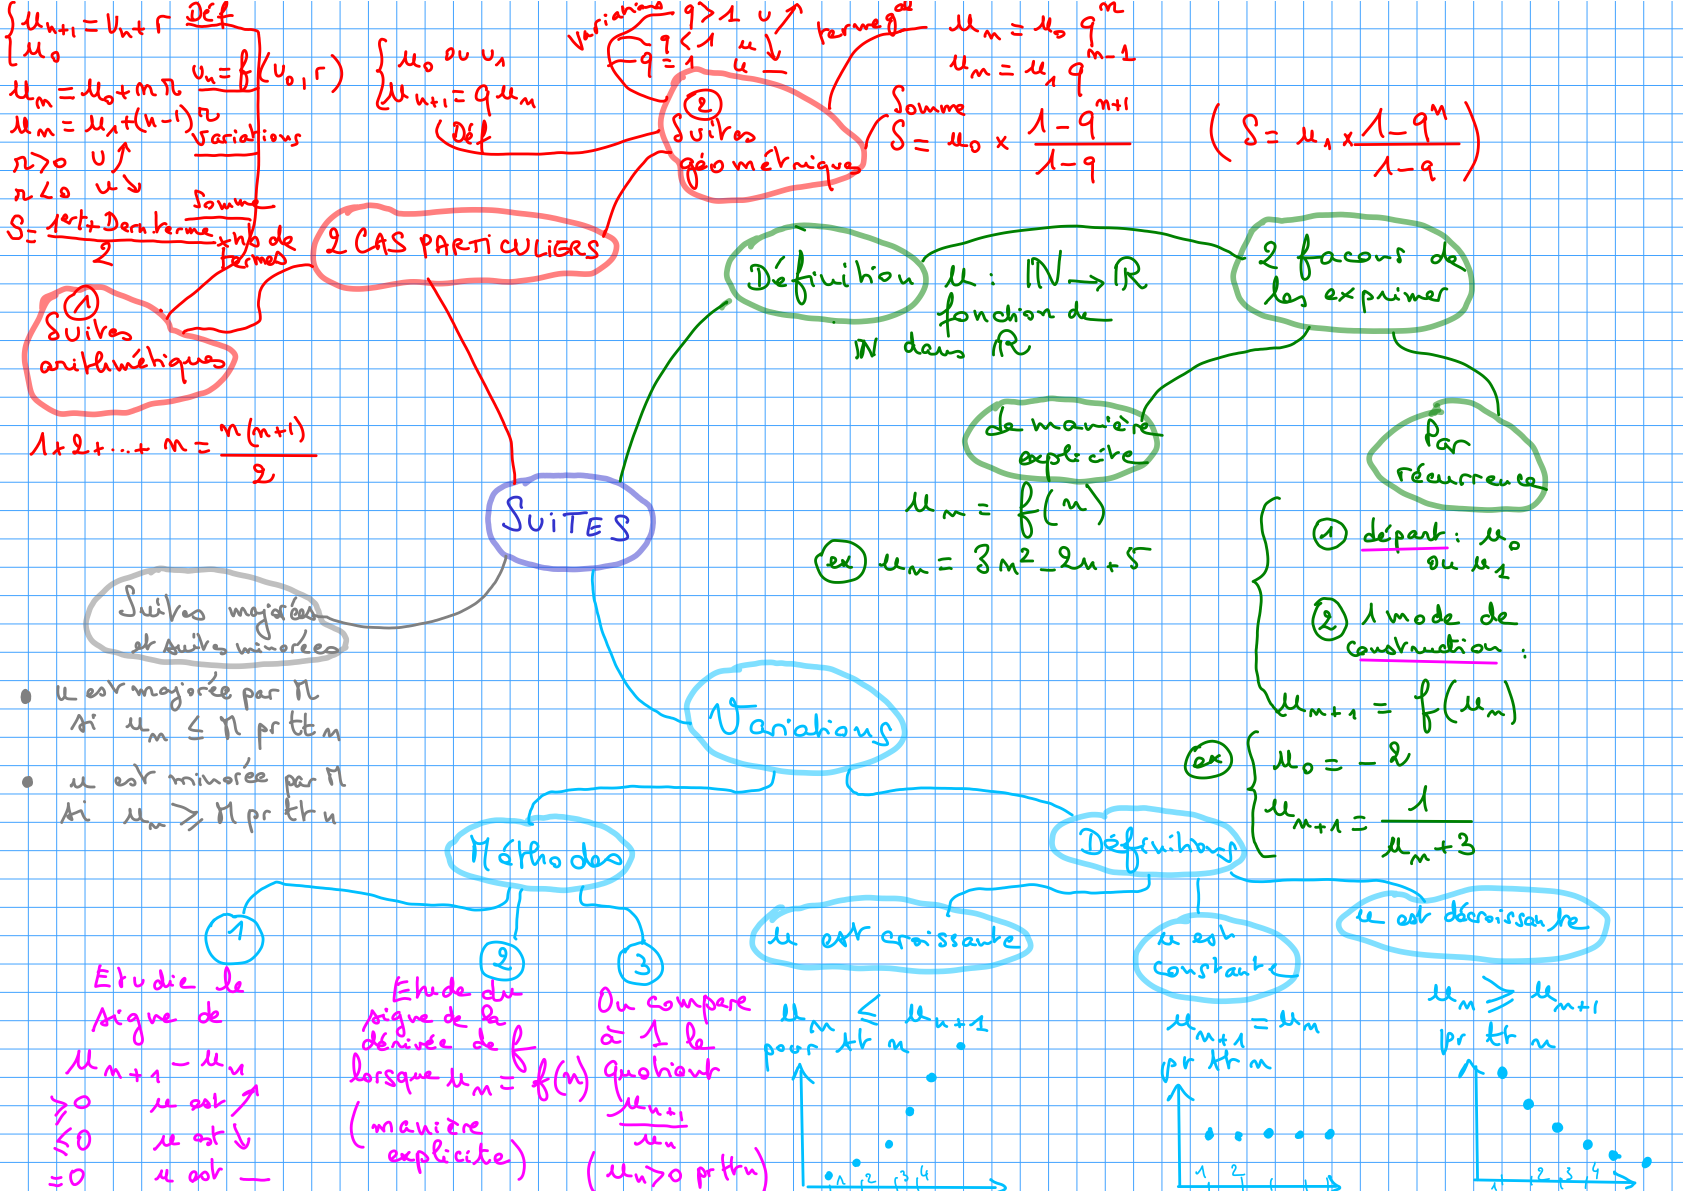 { un+1 = Un + r Déf
u0
Un = f(U0, r)
un = u0 + n r
un = u1 + (n-1) r
Variations
r>0 u ↗
r<0 u ↘
Somme
S = 1er t + Dern terme / 2 × nb de termes
① Suites
arithmétiques
1+2+...+ n = n(n+1) / 2
{ u0 ou u1
un+1 = q un
(Déf
variations q>1 u ↗
q<1 u ↘
q=1 u —
② Suites
géométriques
terme gal
un = u0 q^n
un = u1 q^n-1
Somme
S = u0 × 1-q^n+1 / 1-q
( S = u1 × 1-q^n / 1-q )
2 CAS PARTICULIERS
Définition
u : ℕ → ℝ
fonction de
ℕ dans ℝ
2 facons de
les exprimer
de manière
explicite
un = f(n)
ex un = 3n² - 2n + 5
Par
récurrence
① départ : u0
ou u1
② 1 mode de
construction :
un+1 = f(un)
ex { u0 = -2
un+1 = 1 / un + 3
SUITES
Suites majorées
et suites minorées
• u est majorée par M
si un ≤ M pr tt n
• u est minorée par M
si un ≥ M pr tt n
Variations
Méthodes
①
Etudie le
signe de
un+1 - un
≥0 u est ↗
≤0 u est ↘
=0 u est —
②
Etude du
signe de la
dérivée de f
lorsque un = f(n)
(manière
explicite)
③
On compare
à 1 le
quotient
un+1 / un
(un>0 pr tt n)
Définitions
u est croissante
un ≤ un+1
pour tt n
1 2 3 4
u est
constante
un+1 = un
pr tt n
1 2
u est décroissante
un ≥ un+1
pr tt n
1 2 3 4